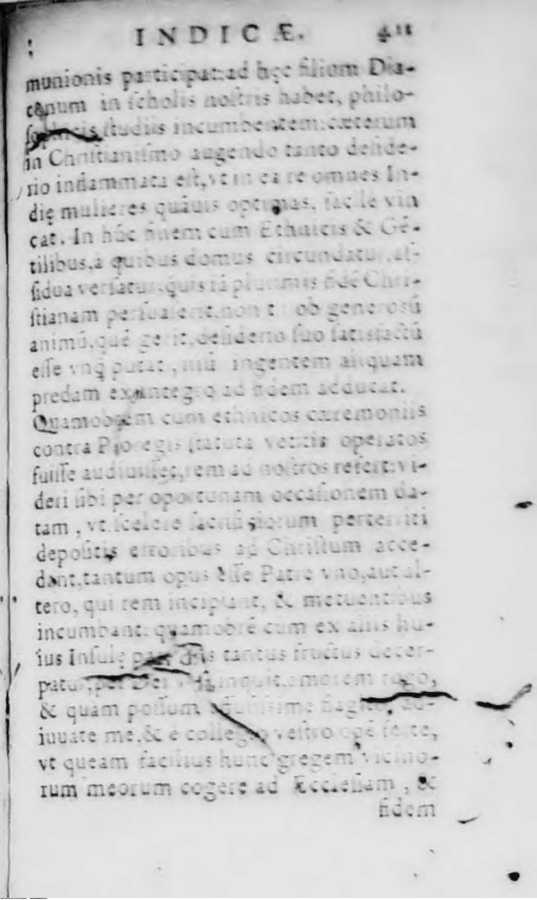 INDICÆ. 411
munionis participat: ad hęc filium Dia-
conum in scholis nostris habet, philo-
sophicis studiis incumbentem: cæterum
in Christianismo augendo tanto deside-
rio inflammata est, vt in ea re omnes In-
dię mulieres quãuis optimas, facilè vin
cat. In hũc finem cum Ethnicis & Gẽ-
tilibus, à quibus domus circundatur, as-
sidua versatur, quîs iã plurimis fidẽ Chri-
stianam persuaserit, non t ob generosũ
animũ, quẽ gerit, desiderio suo satisfactũ
esse vnq̃ putat, nisi ingentem aliquam
predam ex integro ad fidem adducat.
Quamobrem cum ethnicos cæremoniis
contra Proregis statuta vetitis operatos
fuisse audiuisset, rem ad nostros refert: vi-
deri sibi per oportunam occasionem da-
tam, vt scelere sacrificiorum perterriti
depositis erroribus ad Christum acce-
dant, tantum opus esse Patre vno, aut al-
tero, qui rem incipiant, & metuentibus
incumbant: quamobrẽ cum ex aliis hu-
ius Insulę tantus fructus decer-
patur, per Dei vos, inquit, amorem rogo,
& quàm possum flagito, ad-
iuuate me, & è collegio vestro opẽ ferte,
vt queam facilius hunc gregem vicino-
rum meorum cogere ad Ecclesiam, &
fidem